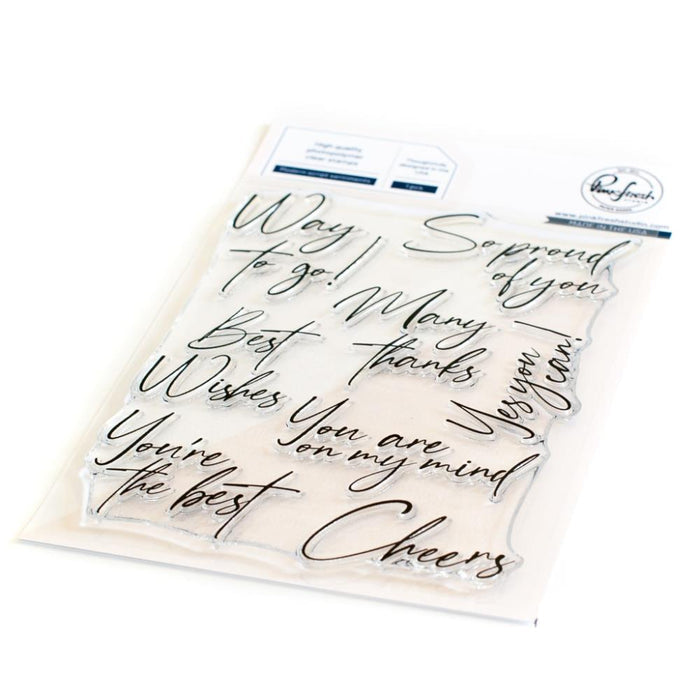 High quality
photopolymer
clear stamps
Modern script sentiments
Thoughtfully
designed in the
USA
1 pcs
Pinkfresh
STUDIO
www.pinkfreshstudio.com
MADE IN THE USA
Way
to go!
So proud
of you
Many
thanks
Yes you
can!
Best
Wishes
You are
on my mind
You're
the best
Cheers